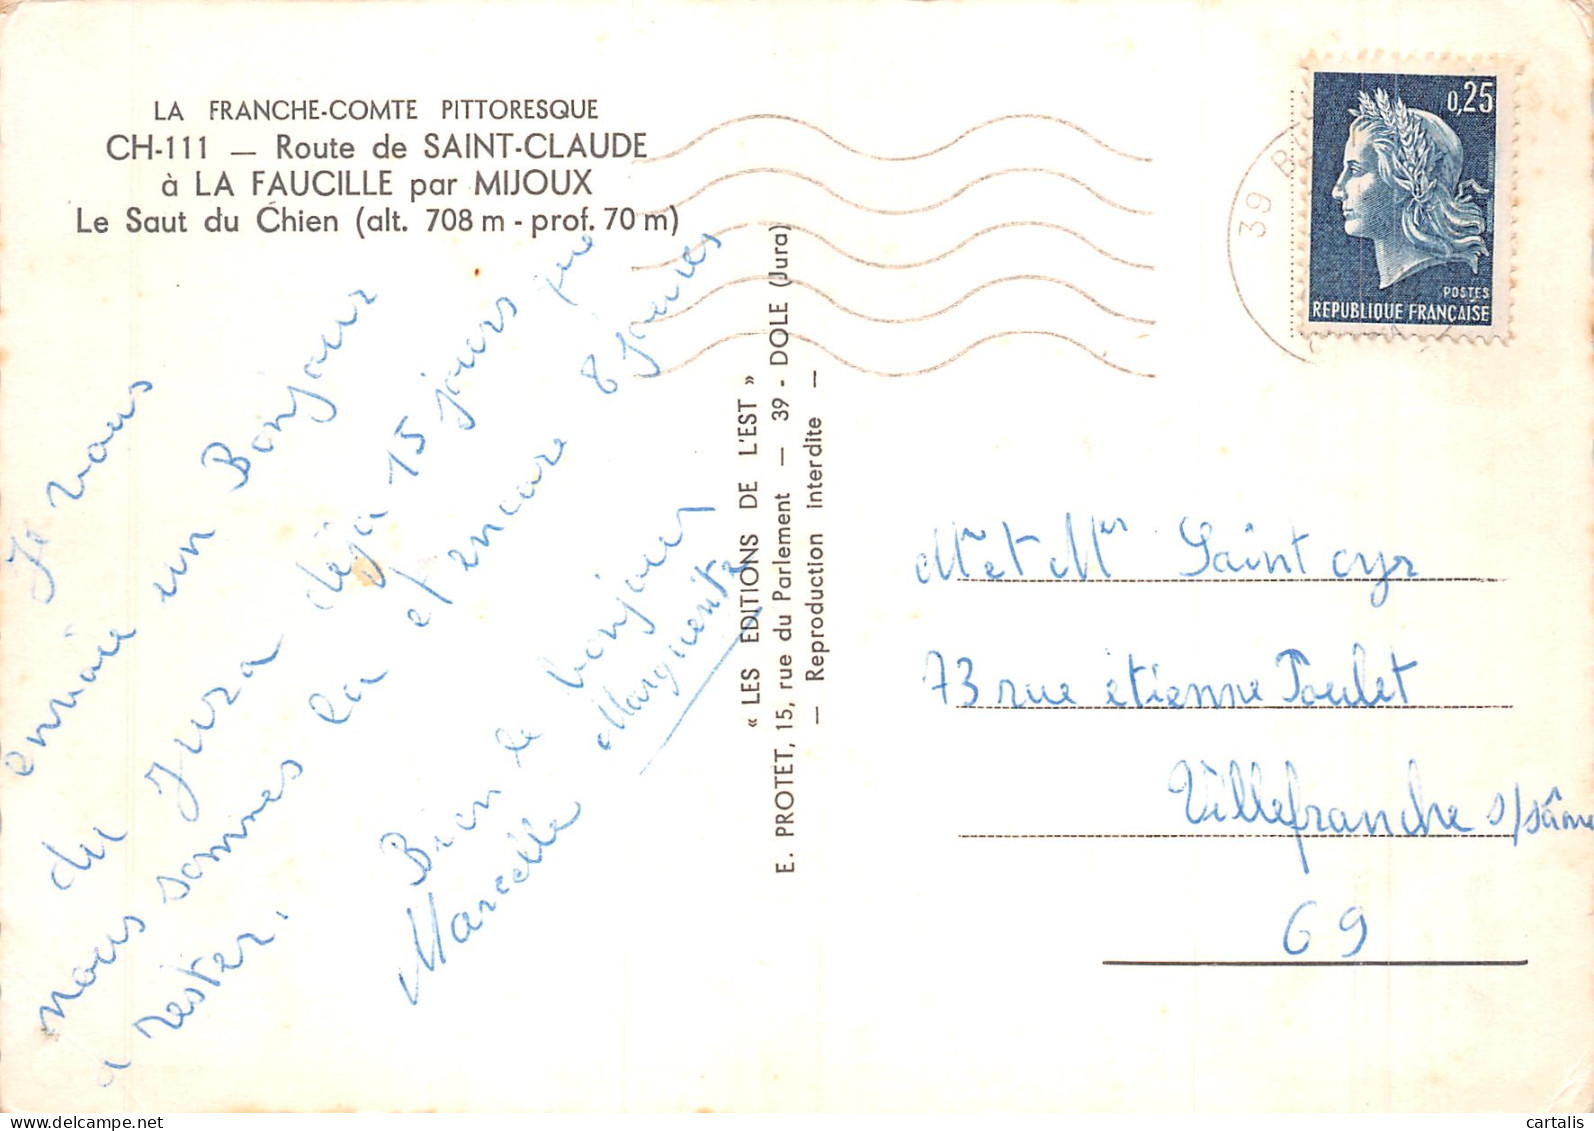 LA FRANCHE-COMTE PITTORESQUE
CH-111 — Route de SAINT-CLAUDE
à LA FAUCILLE par MIJOUX
Le Saut du Chien (alt. 708 m - prof. 70 m)
Je vous
envoie un Bonjour
du Jura déja 15 jours que
nous sommes la et encore 8 journes
a rester.
Bien le bonjour
Marcelle Marguerite
« LES EDITIONS DE L'EST »
E. PROTET, 15, rue du Parlement — 39 - DOLE (Jura)
— Reproduction interdite —
39 B
0,25
POSTES
REPUBLIQUE FRANÇAISE
Mr et Mer Saint cyr
73 rue étienne Poulet
Villefranche s/sâone
69
cartalis